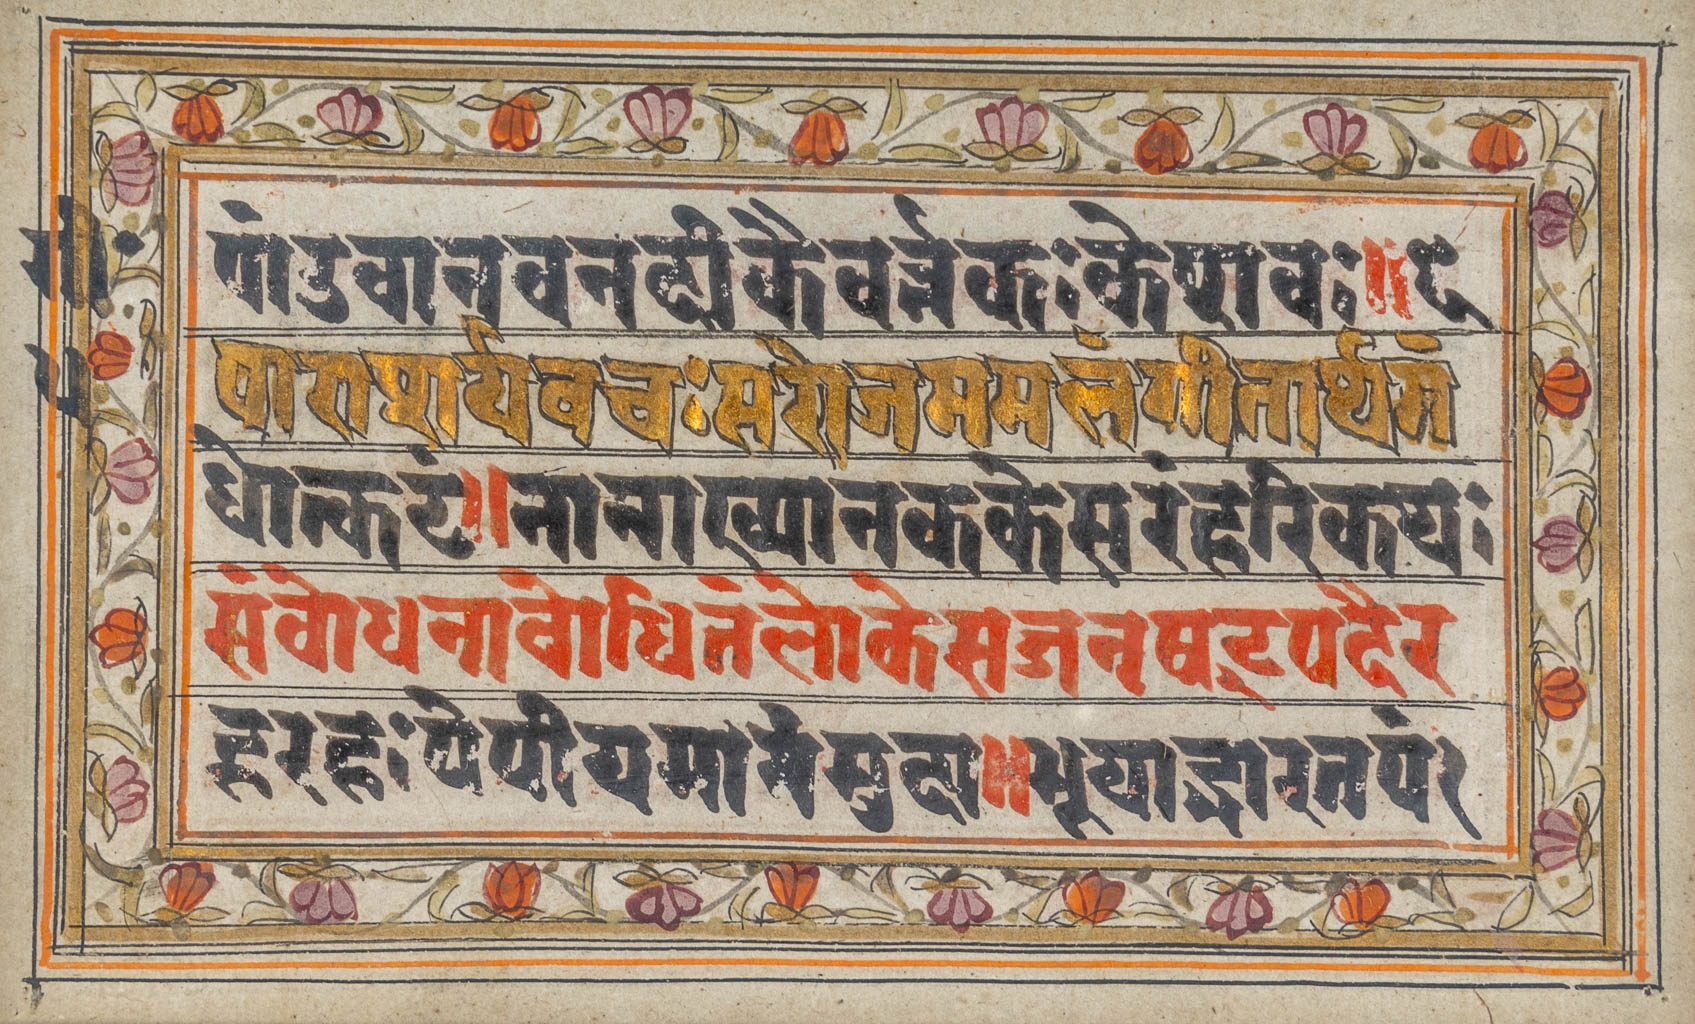 गी॰
५
पांडवानवनदीकैवर्त्तकःकेशवः॥८
पाराशर्यवचःसरोजममलंगीतार्थगं
धोत्कटं॥नानाख्यानककेसरंहरिकथः
संबोधनाबोधितंलोकेसज्जनषट्पदैर
हरहःपेपीयमानंमुदा॥भूयाद्भारतपंर